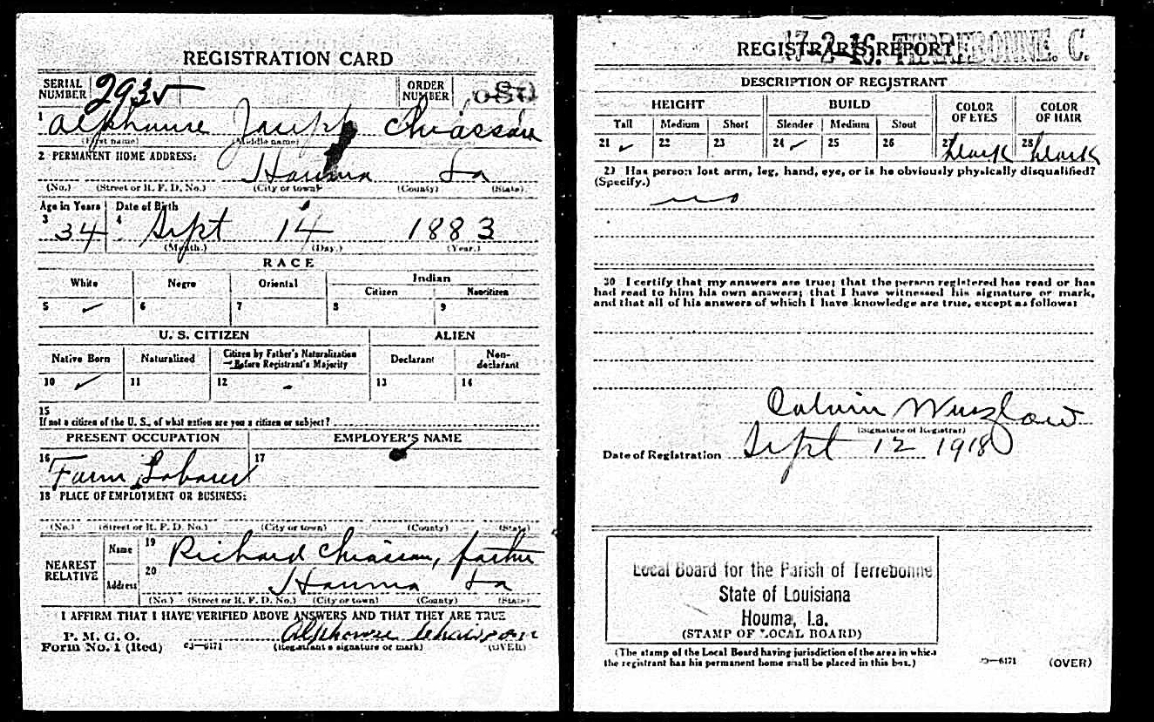 REGISTRATION CARD
SERIAL NUMBER 2935
ORDER NUMBER
1 Alphonse Joseph Chiasson
(First name) (Middle name)
2 PERMANENT HOME ADDRESS:
Houma La
(No.) (Street or R. F. D. No.) (City or town) (County) (State)
Age in Years Date of Birth
3 34 4 Sept 14 1883
(Month.) (Day.) (Year.)
RACE
White Negro Oriental Indian
Citizen Noncitizen
5 ✓ 6 7 8 9
U. S. CITIZEN ALIEN
Native Born Naturalized Citizen by Father's Naturalization Before Registrant's Majority Declarant Non-declarant
10 ✓ 11 12 - 13 14
15
If not a citizen of the U. S., of what nation are you a citizen or subject?
PRESENT OCCUPATION EMPLOYER'S NAME
16 Farm Laborer 17
18 PLACE OF EMPLOYMENT OR BUSINESS:
(No.) (Street or R. F. D. No.) (City or town) (County) (State)
NEAREST RELATIVE
Name 19 Richard Chiasson, father
Address 20 Houma La
(No.) (Street or R. F. D. No.) (City or town) (County) (State)
I AFFIRM THAT I HAVE VERIFIED ABOVE ANSWERS AND THAT THEY ARE TRUE
P. M. G. O.
Form No. 1 (Red) 03—6171 Alphonse Chaisson
(Registrant's signature or mark) (OVER)
17-2-16. TERREBONNE. C.
REGISTRAR'S REPORT
DESCRIPTION OF REGISTRANT
HEIGHT BUILD COLOR OF EYES COLOR OF HAIR
Tall Medium Short Slender Medium Stout
21 ✓ 22 23 24 ✓ 25 26 27 black 28 black
29 Has person lost arm, leg, hand, eye, or is he obviously physically disqualified?
(Specify.)
no
30 I certify that my answers are true; that the person registered has read or has
had read to him his own answers; that I have witnessed his signature or mark,
and that all of his answers of which I have knowledge are true, except as follows:
Calvin Wurzlow
(Signature of Registrar)
Date of Registration Sept 12 1918
Local Board for the Parish of Terrebonne
State of Louisiana
Houma, La.
(STAMP OF LOCAL BOARD)
(The stamp of the Local Board having jurisdiction of the area in which
the registrant has his permanent home shall be placed in this box.)
03—6171 (OVER)